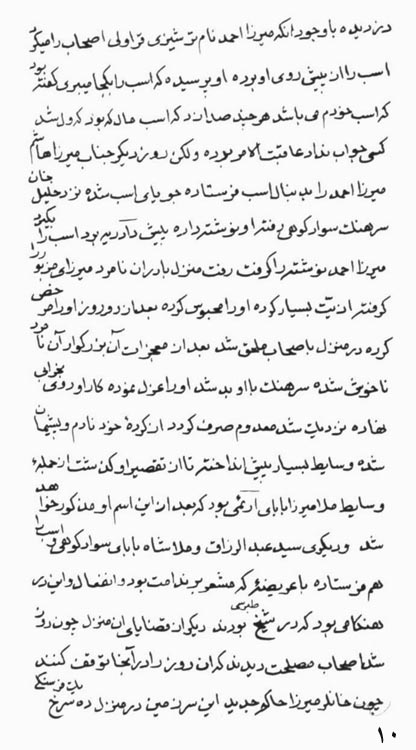 دزدیده باوجود انکه میرزا احمد نام ترشیزی قراولی اصحاب را میکرد
اسب را از پیش روی او بوده او پرسیده که اسب را بکجا میبری گفته بود
که اسب خودم می باشد هر چند صدا زد که اسب مال که بود که ول شد
کسی جواب نداد عاقبت الامر بوده ولکن روز دیگر جناب میرزا هاشم
میرزا احمد را بدنبال اسب فرستاده جویای اسب شده نزد خلیل خان
سرهنک سوار کوهی رفته او نوشته داده پیش دادرس بود اسب را بگیرد
میرزا احمد نوشته را گرفت رفت منزل نامرد میرزای مزبور را
گرفته اذیّت بسیار کرده او را محبوس کرده بعد از دو روز او را مرخص
کرده در منزل باصحاب ملحق شد بعد از معجزات آن بزرکوار آن نامرد
ناخوش شده سرهنک با او بد شد او را عزل نموده کار او روی بخرابی
نهاده نزدیک شد معدوم صرف گردد از کردهٔ خود نادم و پشیمان
شده وسایط بسیار پیش انداخته تا از تقصیر او گذشت از جملهٔ
وسایط ملا میرزا بابای بود که بعد از این اسم او مذکور خواهد
شد و دیگری سید عبد الرزاق و ملا شاه بابای سوار کوهی و اسب را
هم فرستاده با عریضهٔ که مشعر بر ندامت بود و انفعال و این در
هنکامی بود که در شیخ طبرسی بودند دیگر از قضایای ان منزل چون روز
شد اصحاب مصلحت دیدند که ان روز را در آنجا توقف کنند
چون خانلر میرزا حاکم جدید این سرزمین در منزل ده سرخ یک فرسنکی
۱۰